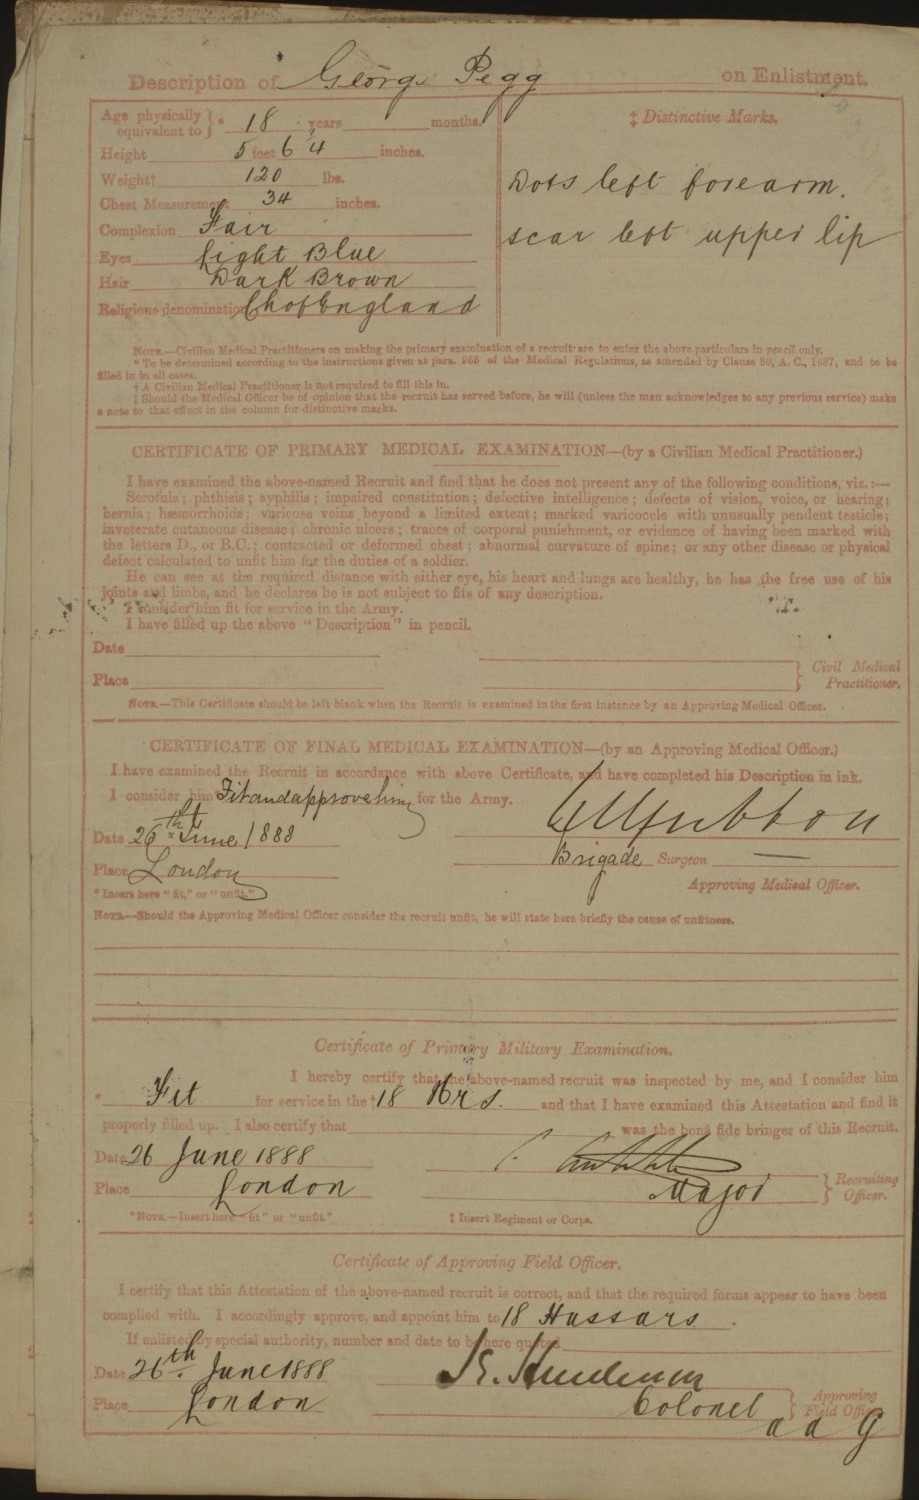 Description of George Pegg on Enlistment.
Age physically equivalent to } * 18 years months.
Height 5 feet 6 1/4 inches.
Weight† 120 lbs.
Chest Measurement 34 inches.
Complexion Fair
Eyes Light Blue
Hair Dark Brown
Religious denomination Ch of England
‡ Distinctive Marks.
Dots left forearm.
scar left upper lip
NOTE.—Civilian Medical Practitioners on making the primary examination of a recruit are to enter the above particulars in pencil only.
* To be determined according to the instructions given at para. 968 of the Medical Regulations, as amended by Clause 80, A. C., 1887, and to be
filled in in all cases.
† A Civilian Medical Practitioner is not required to fill this in.
‡ Should the Medical Officer be of opinion that the recruit has served before, he will (unless the man acknowledges to any previous service) make
a note to that effect in the column for distinctive marks.
CERTIFICATE OF PRIMARY MEDICAL EXAMINATION—(by a Civilian Medical Practitioner.)
I have examined the above-named Recruit and find that he does not present any of the following conditions, viz.:—
Scrofula; phthisis; syphilis; impaired constitution; defective intelligence; defects of vision, voice, or hearing;
hernia; hæmorrhoids; varicose veins beyond a limited extent; marked varicocele with unusually pendent testicle;
inveterate cutaneous disease; chronic ulcers; traces of corporal punishment, or evidence of having been marked with
the letters D., or B.C.; contracted or deformed chest; abnormal curvature of spine; or any other disease or physical
defect calculated to unfit him for the duties of a soldier.
He can see at the required distance with either eye, his heart and lungs are healthy, he has the free use of his
joints and limbs, and he declares he is not subject to fits of any description.
I consider him fit for service in the Army.
I have filled up the above "Description" in pencil.
Date
Place
} Civil Medical Practitioner.
NOTE.—This Certificate should be left blank when the Recruit is examined in the first instance by an Approving Medical Officer.
CERTIFICATE OF FINAL MEDICAL EXAMINATION—(by an Approving Medical Officer.)
I have examined the Recruit in accordance with above Certificate, and have completed his Description in ink.
I consider him Fit and approve him for the Army.
Date 26th June 1888
Place London
Brigade Surgeon
Approving Medical Officer.
* Insert here "fit," or "unfit."
NOTE.—Should the Approving Medical Officer consider the recruit unfit, he will state here briefly the cause of unfitness.
Certificate of Primary Military Examination.
I hereby certify that the above-named recruit was inspected by me, and I consider him
* Fit for service in the † 18 Hrs. and that I have examined this Attestation and find it
properly filled up. I also certify that was the bonâ fide bringer of this Recruit.
Date 26 June 1888
Place London
Major } Recruiting Officer.
*NOTE.—Insert here "fit" or "unfit."
‡ Insert Regiment or Corps.
Certificate of Approving Field Officer.
I certify that this Attestation of the above-named recruit is correct, and that the required forms appear to have been
complied with. I accordingly approve, and appoint him to 18 Hussars.
If enlisted by special authority, number and date to be here quoted
Date 26th June 1888
Place London
Colonel } Approving Field Officer
a a G